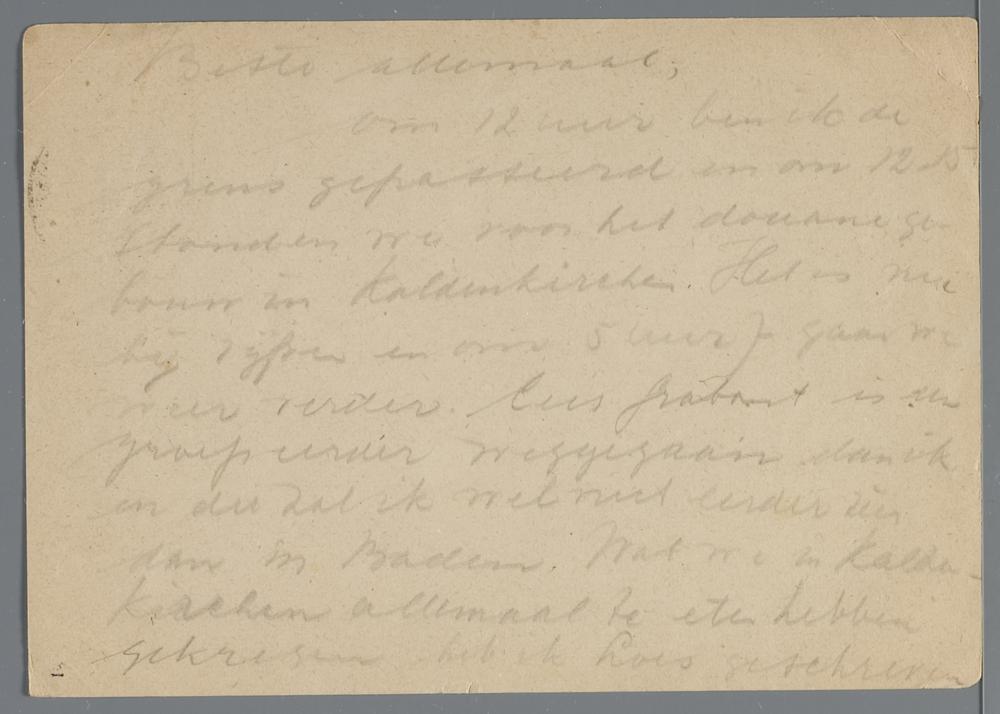 Beste allemaal,
om 12 uur ben ik de
grens gepasseerd en om 12.15
stonden we voor het douane ge-
bouw in Kaldenkirchen. Het is nu
bij vijven en om 5 uur gaan we
weer verder. Cees is een
groep eerder weggegaan dan ik
en die zal ik wel niet eerder zien
dan in Baden. Wat we in Kalden-
kirchen allemaal te eten hebben
gekregen heb ik Loes geschreven